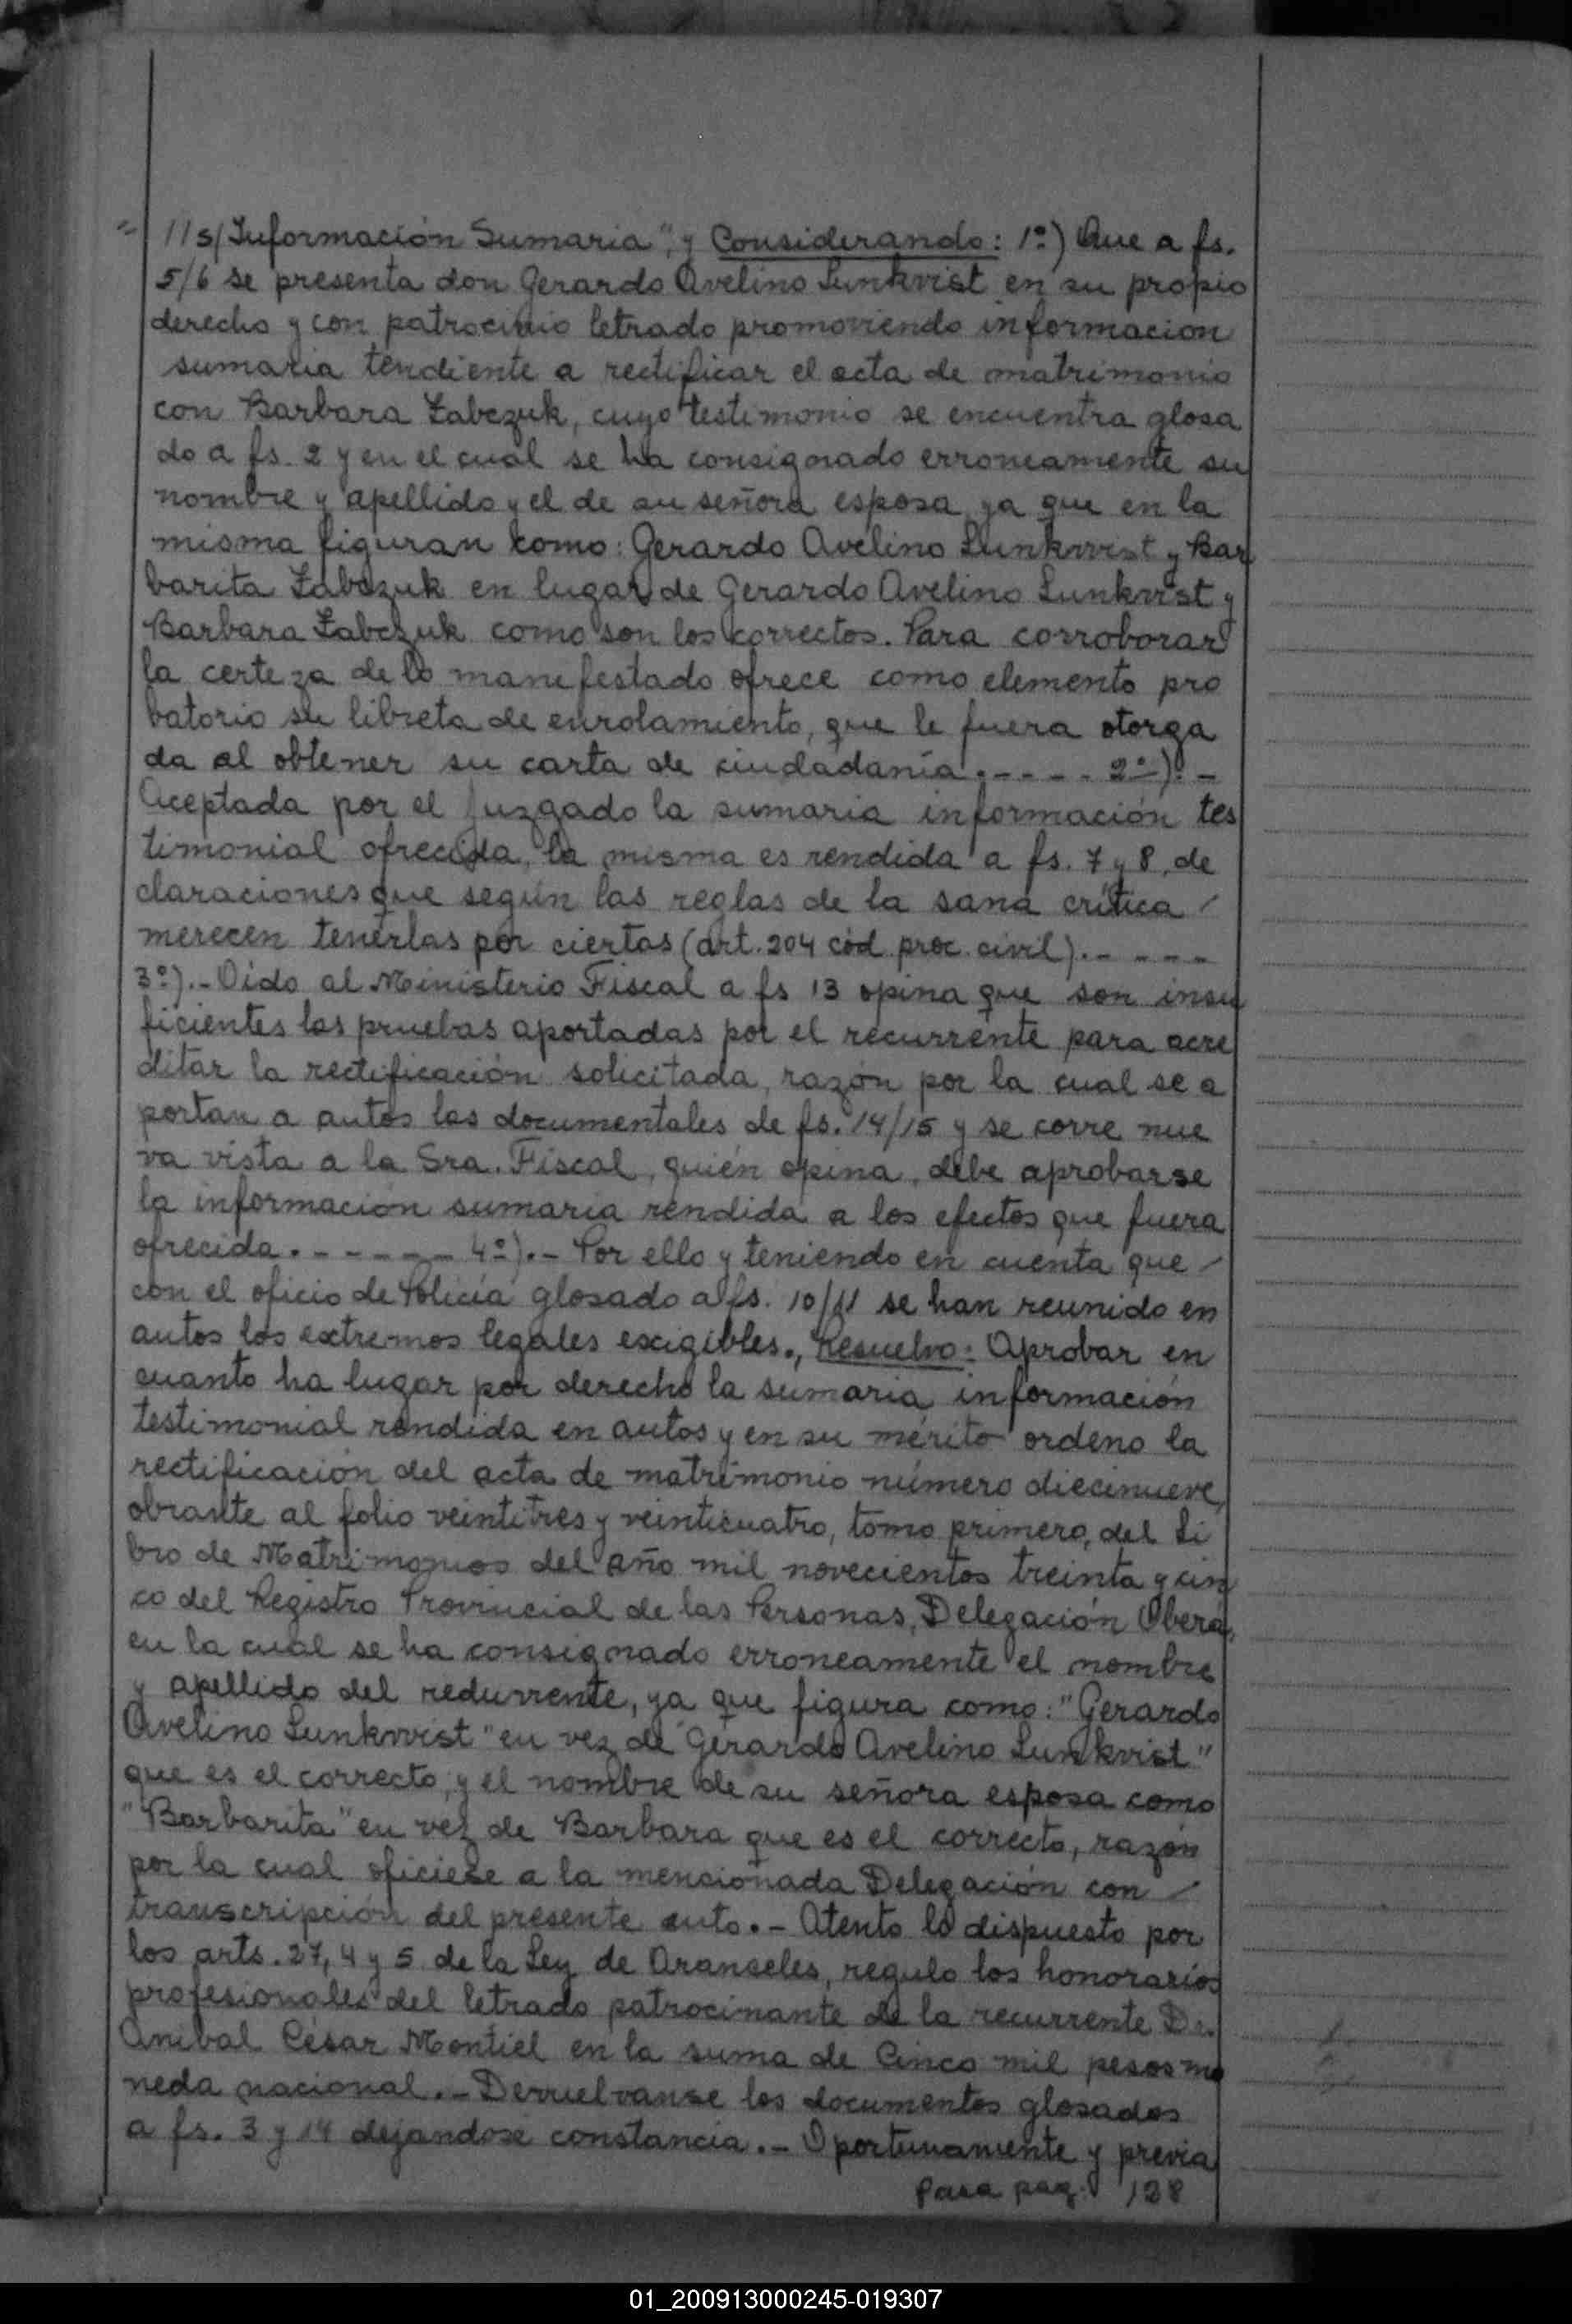 " 11 s/Información Sumaria", y Considerando: 1º) Que a fs.
5/6 se presenta don Gerardo Avelino Sunkvist en su propio
derecho y con patrocinio letrado promoviendo informacion
sumaria tendiente a rectificar el acta de matrimonio
con Barbara Zabczuk, cuyo testimonio se encuentra glosa
do a fs. 2 y en el cual se ha consignado erroneamente su
nombre y apellido y el de su señora esposa, ya que en la
misma figuran como: Gerardo Avelino Sunkvvist y Bar
barita Zabczuk en lugar de Gerardo Avelino Sunkvist y
Barbara Zabczuk como son los correctos. Para corroborar
la certeza de lo manifestado ofrece como elemento pro
batorio su libreta de enrolamiento, que le fuera otorga
da al obtener su carta de ciudadanía.- - - - 2º).-
Aceptada por el Juzgado la sumaria información tes
timonial ofrecida, la misma es rendida a fs. 7 y 8, de
claraciones que según las reglas de la sana crítica /
merecen tenerlas por ciertas (art. 204 cód. proc. civil).- - - - -
3º).- Oído al Ministerio Fiscal a fs 13 opina que son insu
ficientes las pruebas aportadas por el recurrente para acre
ditar la rectificación solicitada, razón por la cual se a
portan a autos las documentales de fs. 14/15 y se corre nue
va vista a la Sra. Fiscal, quién opina, debe aprobarse
la información sumaria rendida a los efectos que fuera
ofrecida.- - - - - - 4º).- Por ello y teniendo en cuenta que /
con el oficio de Policía glosado a fs. 10/11 se han reunido en
autos los extremos legales exigibles., Resuelvo: Aprobar en
cuanto ha lugar por derecho la sumaria información
testimonial rendida en autos y en su mérito ordeno la
rectificación del acta de matrimonio número diecinueve,
obrante al folio veintitres y veinticuatro, tomo primero, del Li
bro de Matrimonios del año mil novecientos treinta y cin
co del Registro Provincial de las Personas, Delegación Oberá,
en la cual se ha consignado erroneamente el nombre
y apellido del redurrente, ya que figura como: "Gerardo
Avelino Sunkvvist" en vez de "Gerardo Avelino Sunkvist"
que es el correcto, y el nombre de su señora esposa como
"Barbarita" en vez de Barbara que es el correcto, razón
por la cual oficiese a la mencionada Delegación con /
transcripción del presente auto.- Atento lo dispuesto por
los arts. 27, 4 y 5 de la Ley de Aranseles, regulo los honorarios
profesionales del letrado patrocinante de la recurrente Dr.
Anibal César Montiel en la suma de Cinco mil pesos mo
neda nacional.- Devuelvanse los documentos glosados
a fs. 3 y 14 dejandose constancia.- Oportunamente y previa
Pasa pag. 128
01_200913000245-019307